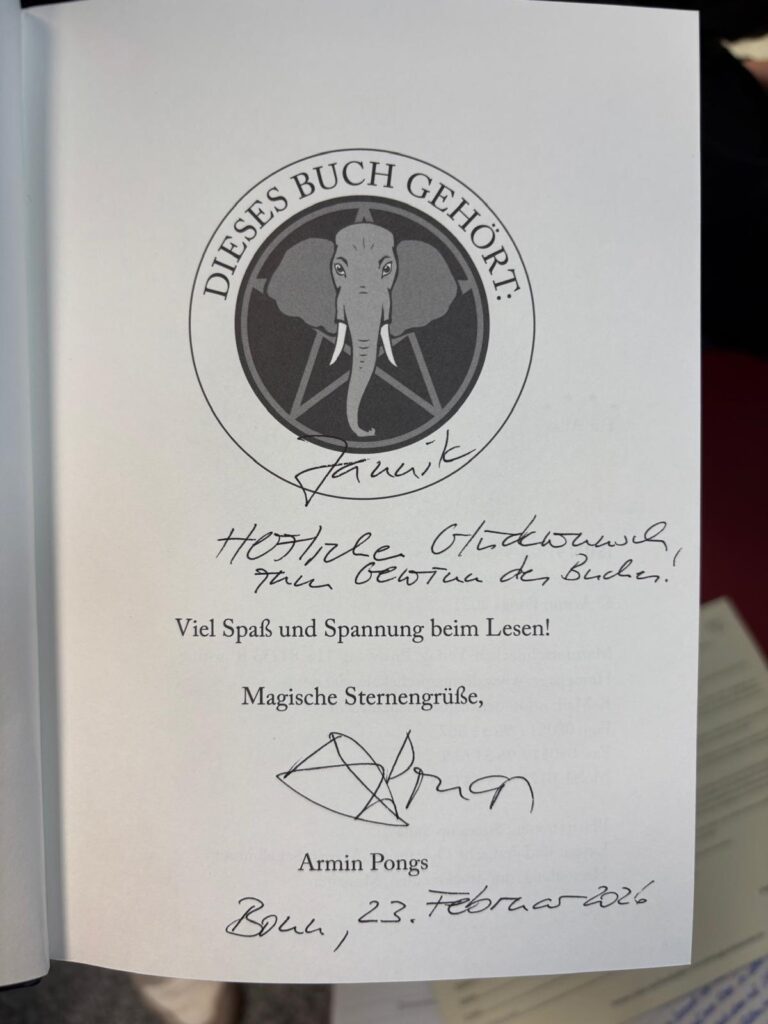 DIESES BUCH GEHÖRT:
Jannik
Herzlichen Glückwunsch,
zum Gewinn des Buches!
Viel Spaß und Spannung beim Lesen!
Magische Sternengrüße,
A Pongs
Armin Pongs
Bonn, 23. Februar 2026